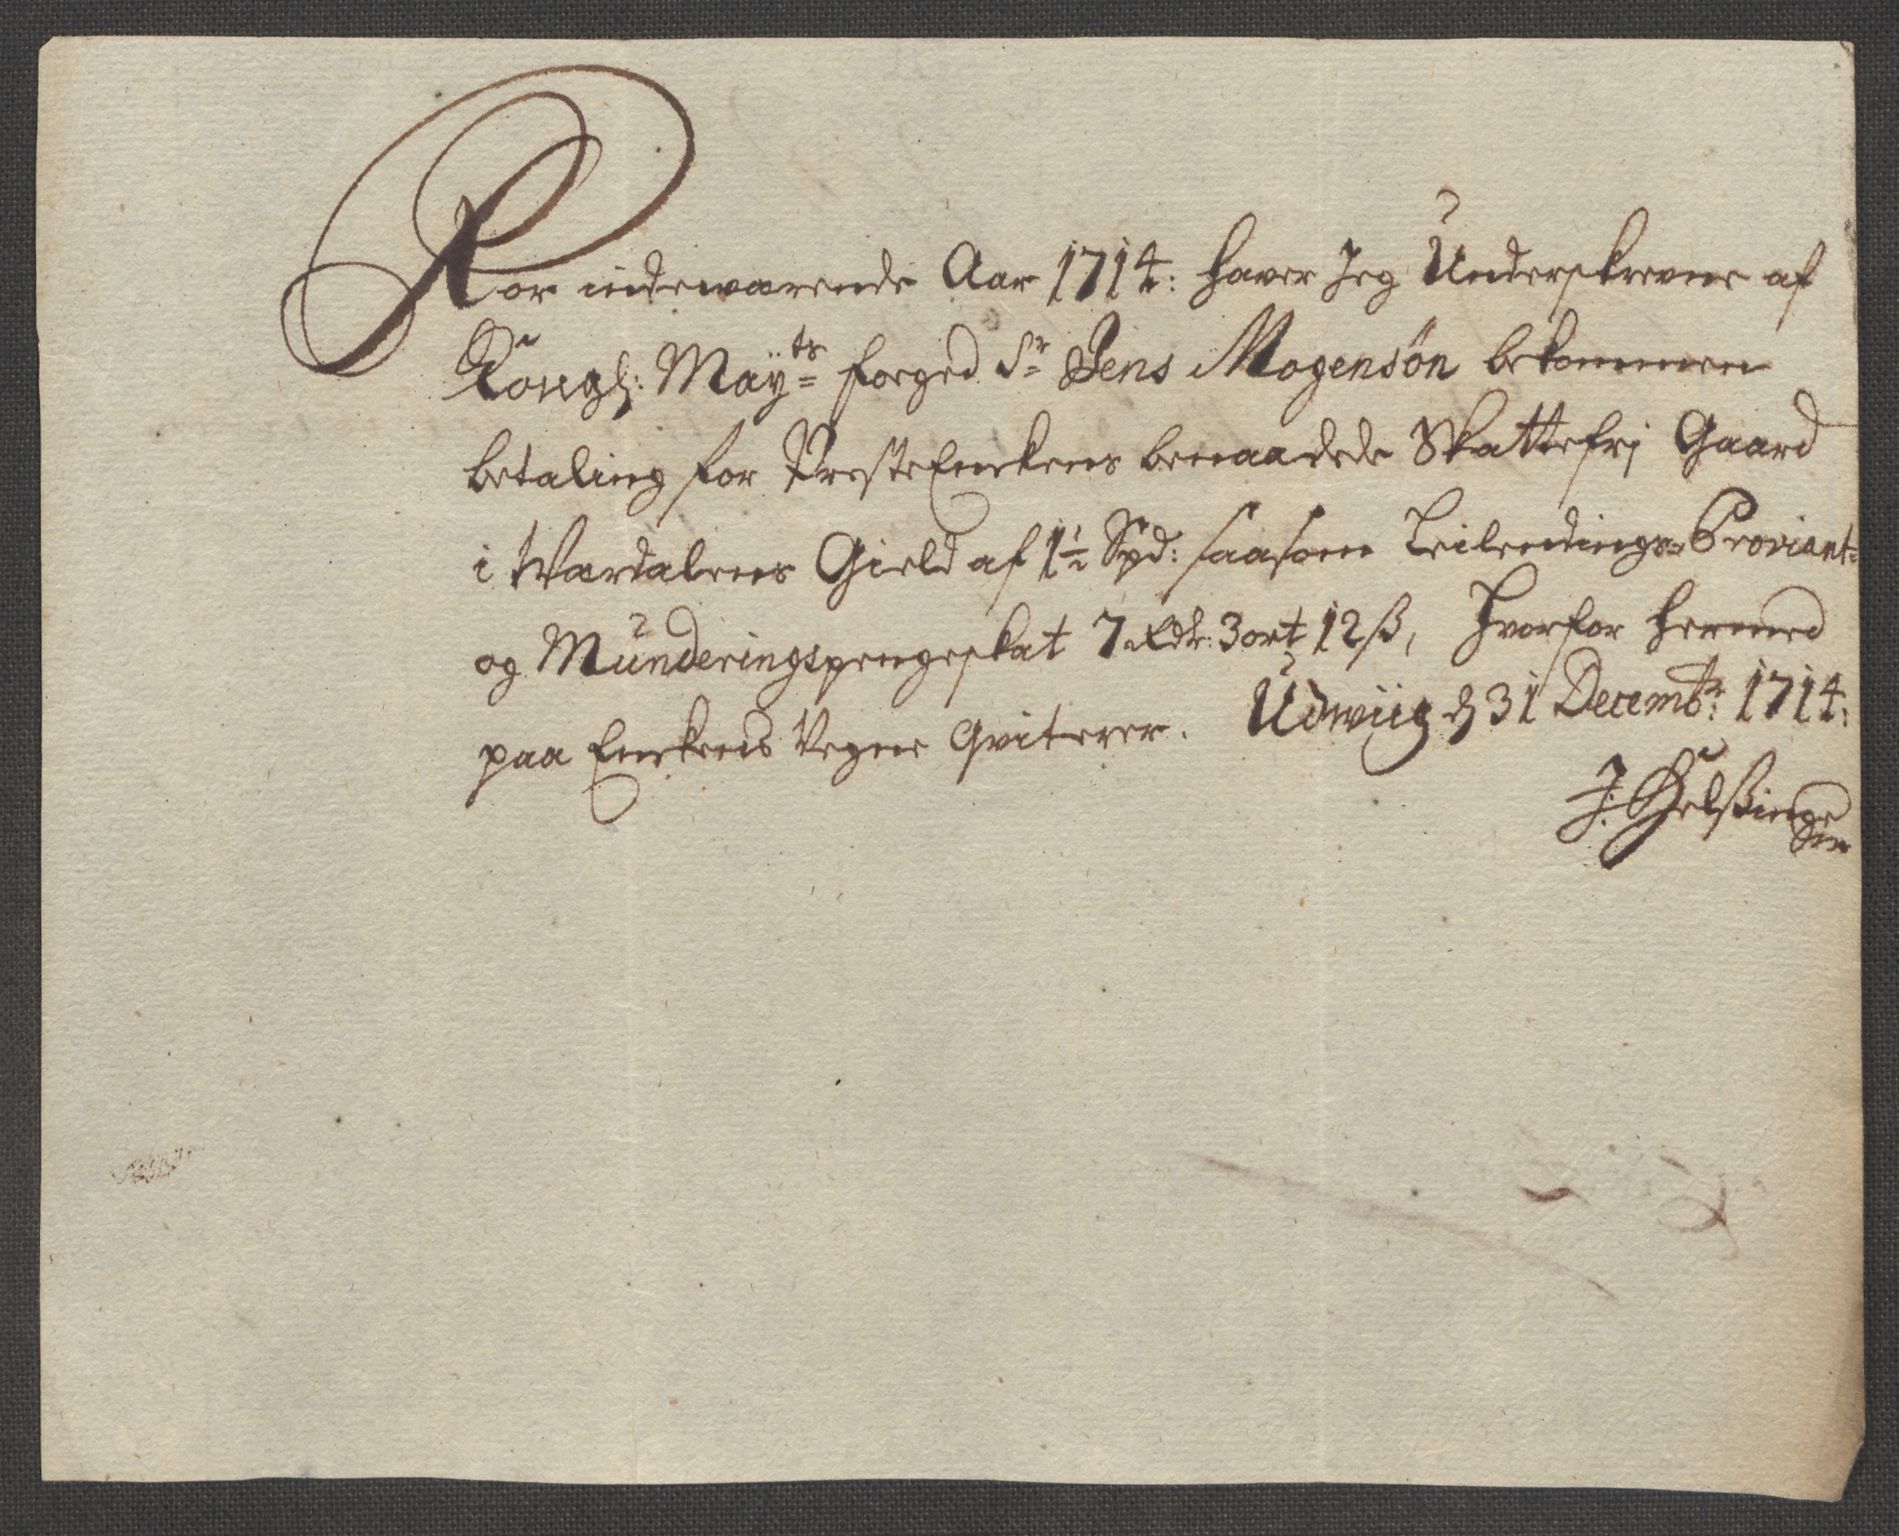 For indewærende Aar 1714: hafver Jeg Underskrevne af
Kongl: Mayts foeged Sr Jens Mogensøn bekommen
betaling for PresteEnckens benaadede Skattefrj Gaard
i Værdalens Gield af 1½ Spd: saasom Leilendings- Proviant-
og Munderingspengeskat 7 Rdr: 3 ort 12 ß, hvorfor hermed
paa Enckens Vegne Qviterer. Udwiig d 31 Decembr: 1714:
J: Helsing